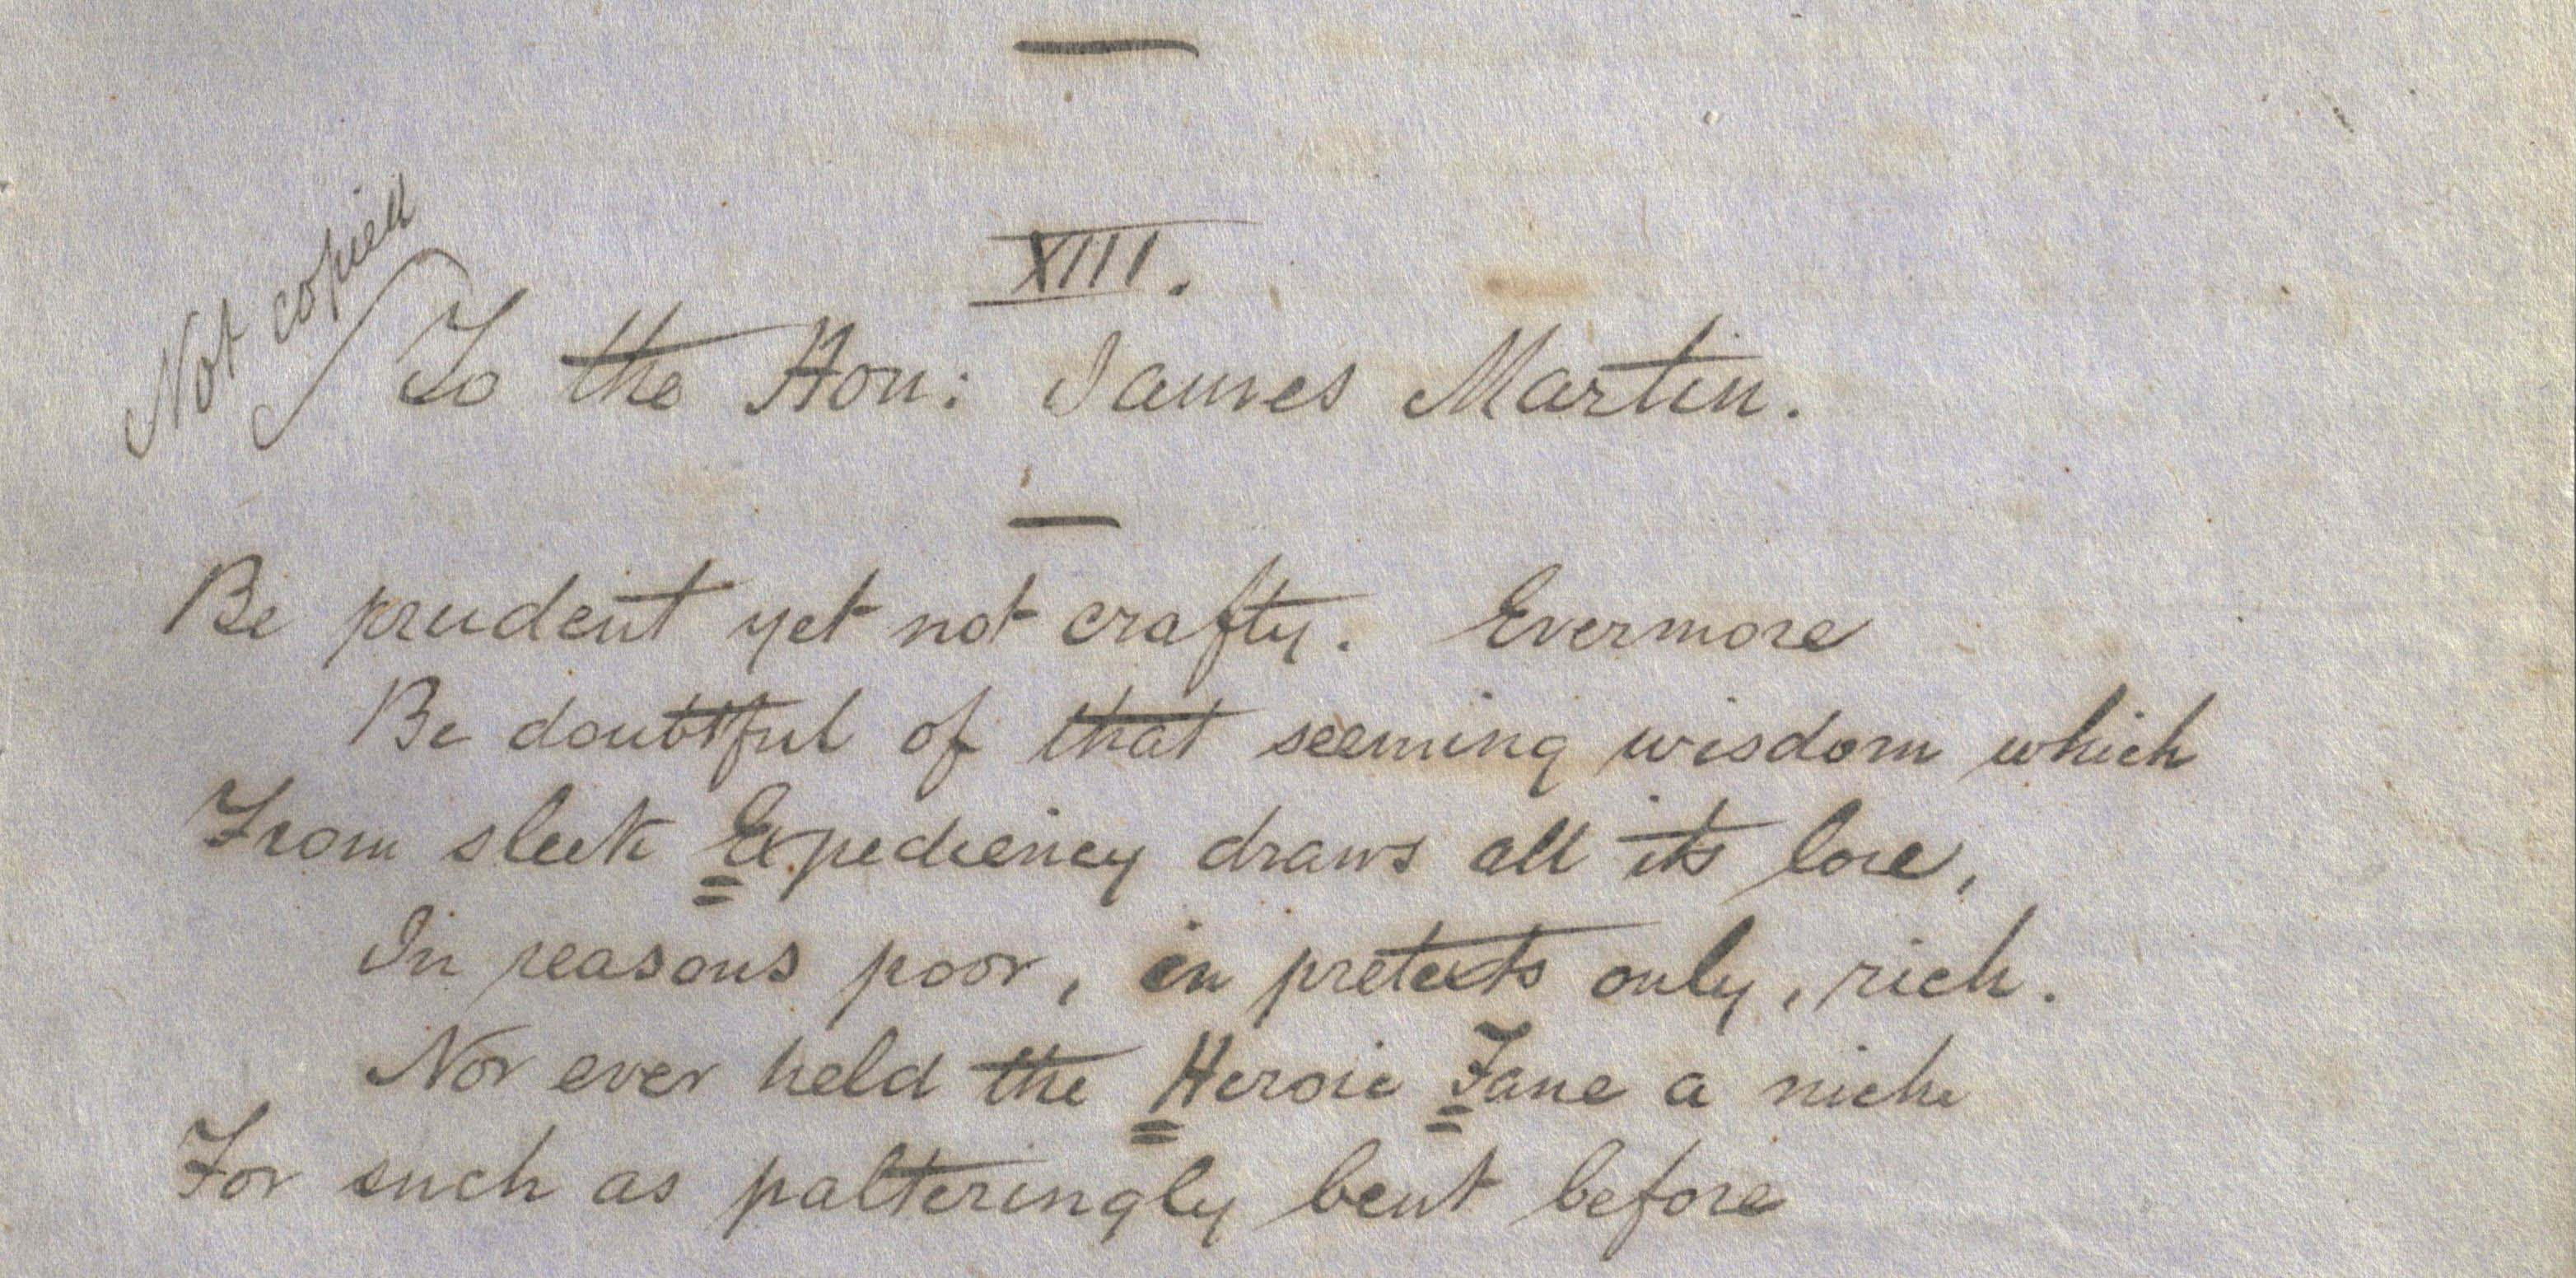 XIII.
Not copied
To the Hon: James Martin.
Be prudent yet not crafty. Evermore
Be doubtful of that seeming wisdom which
From sleek Expediency draws all its lore,
In reasons poor, in pretexts only, rich.
Nor ever held the Heroic Fane a niche
For such as palteringly bent before